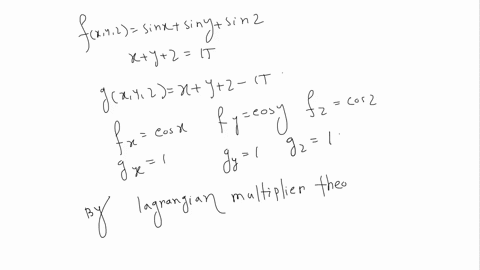 f(x,y,z)=sinx+siny+sinz
x+y+z=π
g(x,y,z)=x+y+z-π
fx=cosx fy=cosy fz=cosz
gx=1 gy=1 gz=1
By lagrangian multiplier theo